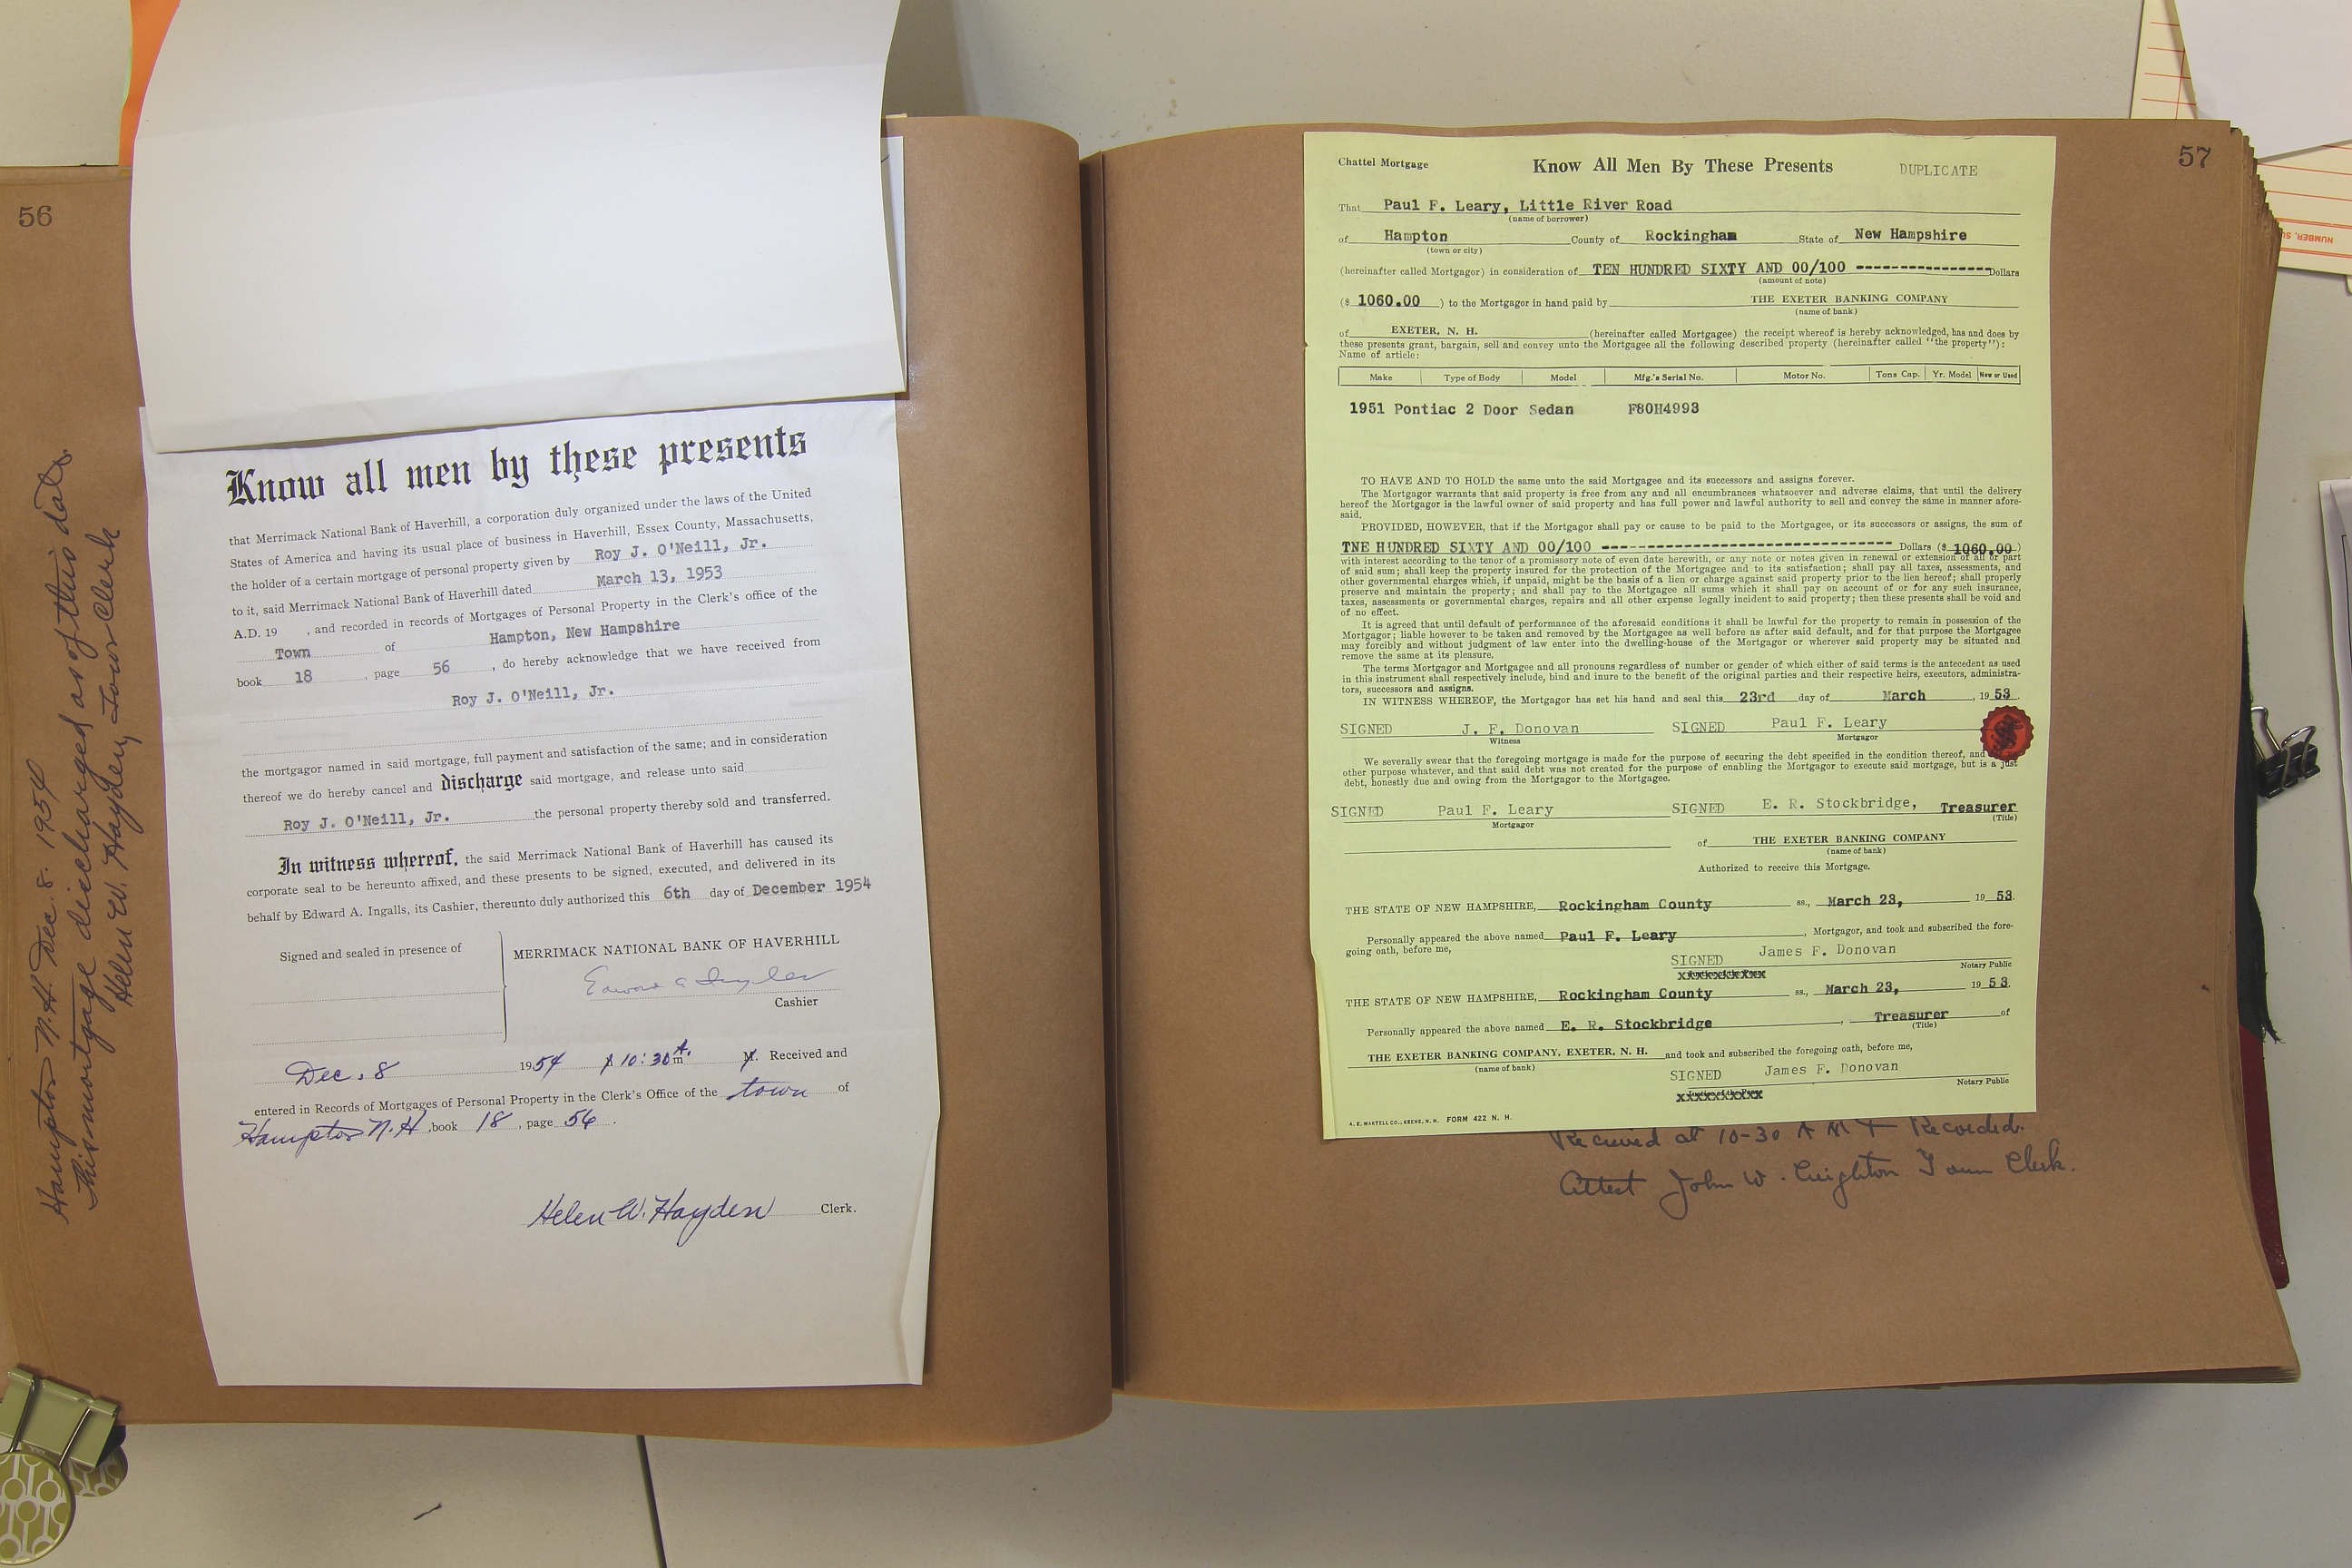 56
Know all men by these presents
that Merrimack National Bank of Haverhill, a corporation duly organized under the laws of the United
States of America and having its usual place of business in Haverhill, Essex County, Massachusetts,
the holder of a certain mortgage of personal property given by Roy J. O'Neill, Jr.
to it, said Merrimack National Bank of Haverhill dated March 13, 1953
A.D. 19 , and recorded in records of Mortgages of Personal Property in the Clerk's office of the
Town of Hampton, New Hampshire
book 18 , page 56 , do hereby acknowledge that we have received from
Roy J. O'Neill, Jr.
the mortgagor named in said mortgage, full payment and satisfaction of the same; and in consideration
thereof we do hereby cancel and discharge said mortgage, and release unto said
Roy J. O'Neill, Jr. the personal property thereby sold and transferred.
In witness whereof, the said Merrimack National Bank of Haverhill has caused its
corporate seal to be hereunto affixed, and these presents to be signed, executed, and delivered in its
behalf by Edward A. Ingalls, its Cashier, thereunto duly authorized this 6th day of December 1954
Signed and sealed in presence of
MERRIMACK NATIONAL BANK OF HAVERHILL
Edward A Ingalls
Cashier
Dec. 8 1954 10:30 m A. M. Received and
entered in Records of Mortgages of Personal Property in the Clerk's Office of the town of
Hampton N.H ,book 18 , page 56 .
Helen W. Hayden Clerk.
Hampton N.H. Dec. 8. 1954
This mortgage discharged as of this date.
Helen W. Hayden, Town Clerk
57
Chattel Mortgage Know All Men By These Presents DUPLICATE
That Paul F. Leary, Little River Road
(name of borrower)
of Hampton County of Rockingham State of New Hampshire
(town or city)
(hereinafter called Mortgagor) in consideration of TEN HUNDRED SIXTY AND 00/100 ---------------- Dollars
(amount of note)
($ 1060.00 ) to the Mortgagor in hand paid by THE EXETER BANKING COMPANY
(name of bank)
of EXETER, N. H. (hereinafter called Mortgagee) the receipt whereof is hereby acknowledged, has and does by
these presents grant, bargain, sell and convey unto the Mortgagee all the following described property (hereinafter called "the property"):
Name of article:
Make Type of Body Model Mfg.'s Serial No. Motor No. Tons Cap. Yr. Model New or Used
1951 Pontiac 2 Door Sedan F80H4993
TO HAVE AND TO HOLD the same unto the said Mortgagee and its successors and assigns forever.
The Mortgagor warrants that said property is free from any and all encumbrances whatsoever and adverse claims, that until the delivery
hereof the Mortgagor is the lawful owner of said property and has full power and lawful authority to sell and convey the same in manner afore-
said.
PROVIDED, HOWEVER, that if the Mortgagor shall pay or cause to be paid to the Mortgagee, or its successors or assigns, the sum of
TNE HUNDRED SIXTY AND 00/100 -------------------------------- Dollars ($ 1060.00 )
with interest according to the tenor of a promissory note of even date herewith, or any note or notes given in renewal or extension of all or part
of said sum; shall keep the property insured for the protection of the Mortgagee and to its satisfaction; shall pay all taxes, assessments, and
other governmental charges which, if unpaid, might be the basis of a lien or charge against said property prior to the lien hereof; shall properly
preserve and maintain the property; and shall pay to the Mortgagee all sums which it shall pay on account of or for any such insurance,
taxes, assessments or governmental charges, repairs and all other expense legally incident to said property; then these presents shall be void and
of no effect.
It is agreed that until default of performance of the aforesaid conditions it shall be lawful for the property to remain in possession of the
Mortgagor; liable however to be taken and removed by the Mortgagee as well before as after said default, and for that purpose the Mortgagee
may forcibly and without judgment of law enter into the dwelling-house of the Mortgagor or wherever said property may be situated and
remove the same at its pleasure.
The terms Mortgagor and Mortgagee and all pronouns regardless of number or gender of which either of said terms is the antecedent as used
in this instrument shall respectively include, bind and inure to the benefit of the original parties and their respective heirs, executors, administra-
tors, successors and assigns.
IN WITNESS WHEREOF, the Mortgagor has set his hand and seal this 23rd day of March , 19 53.
SIGNED J. F. Donovan SIGNED Paul F. Leary
Witness Mortgagor
We severally swear that the foregoing mortgage is made for the purpose of securing the debt specified in the condition thereof, and
other purpose whatever, and that said debt was not created for the purpose of enabling the Mortgagor to execute said mortgage, but is a just
debt, honestly due and owing from the Mortgagor to the Mortgagee.
SIGNED Paul F. Leary SIGNED E. R. Stockbridge, Treasurer
Mortgagor (Title)
of THE EXETER BANKING COMPANY
(name of bank)
Authorized to receive this Mortgage.
THE STATE OF NEW HAMPSHIRE, Rockingham County ss., March 23, 19 53.
Personally appeared the above named Paul F. Leary , Mortgagor, and took and subscribed the fore-
going oath, before me,
SIGNED James F. Donovan
Notary Public
THE STATE OF NEW HAMPSHIRE, Rockingham County ss., March 23, 19 53.
Personally appeared the above named E. R. Stockbridge , Treasurer of
(Title)
THE EXETER BANKING COMPANY, EXETER, N. H. and took and subscribed the foregoing oath, before me,
(name of bank)
SIGNED James F. Donovan
Notary Public
A. E. MARTELL CO., KEENE, N. H. FORM 422 N. H.
Received at 10-30 A M + Recorded.
Attest John W. Creighton Town Clerk.
NUMBER, SU